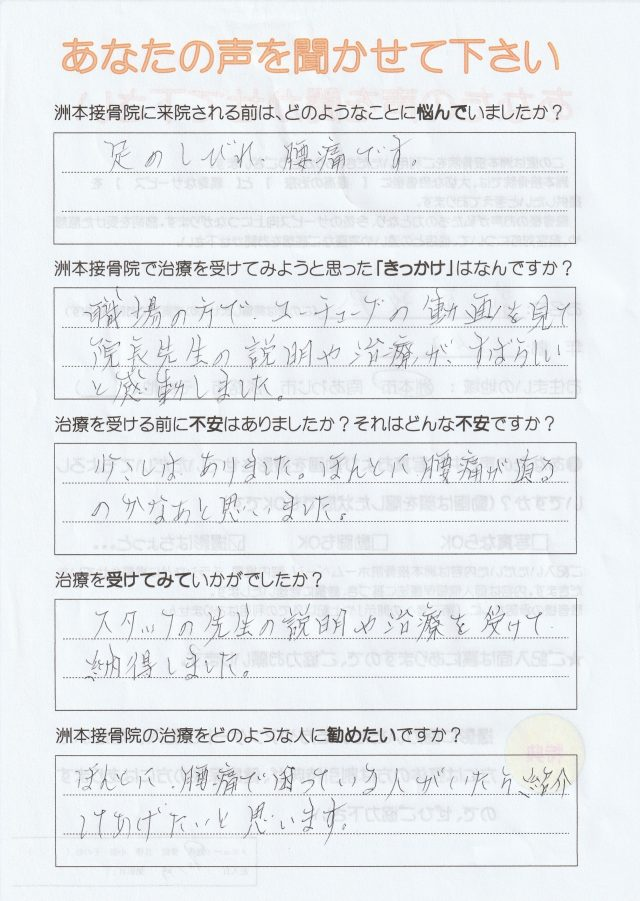 あなたの声を聞かせて下さい
洲本接骨院に来院される前は、どのようなことに悩んでいましたか？
足のしびれ、腰痛です。
洲本接骨院で治療を受けてみようと思った「きっかけ」はなんですか？
職場の方で、ユーチューブの動画を見て
院長先生の説明や治療が、すばらしい
と感動しました。
治療を受ける前に不安はありましたか？それはどんな不安ですか？
少こしはありました。ほんとに腰痛が直る
のかなぁと思いました。
治療を受けてみていかがでしたか？
スタッフの先生の説明や治療を受けて
納得しました。
洲本接骨院の治療をどのような人に勧めたいですか？
ほんとに、腰痛で困っている人がいたら、紹介
してあげたいと思います。